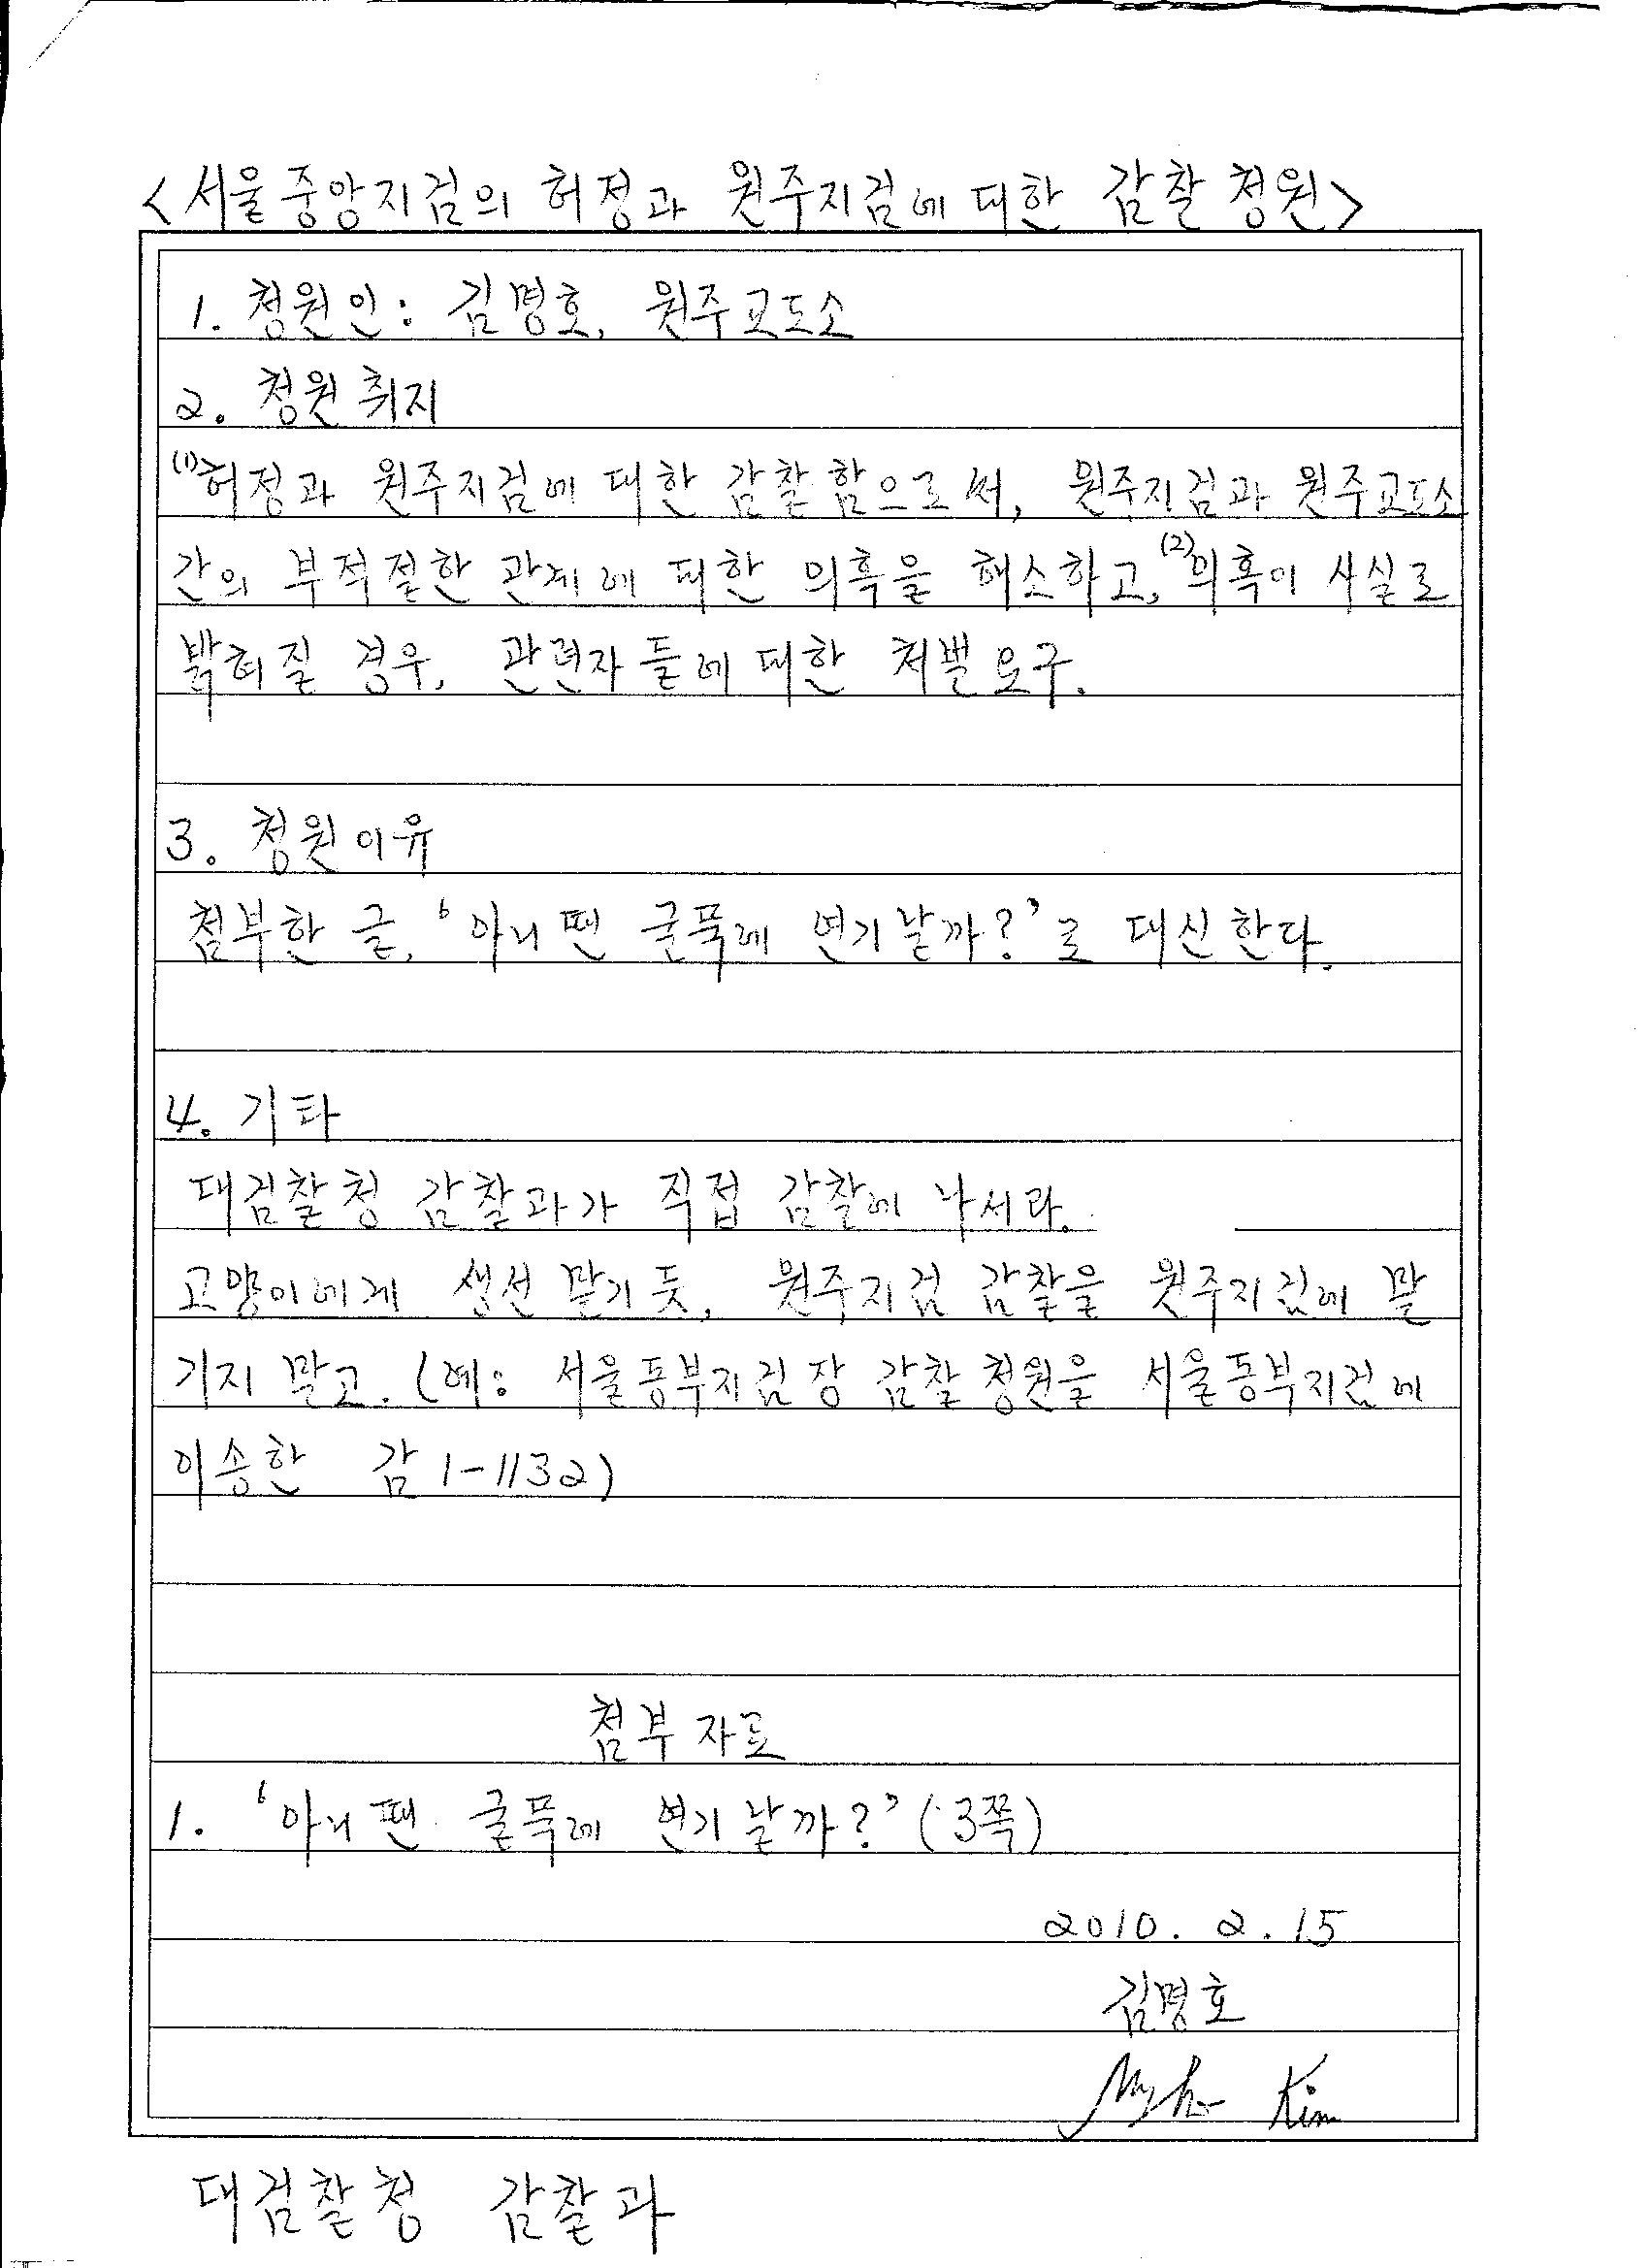 <서울중앙지검의 허정과 원주지검에 대한 감찰 청원>
1. 청원인: 김명호, 원주교도소
2. 청원취지
(1)허정과 원주지검에 대한 감찰함으로써, 원주지검과 원주교도소
간의 부적절한 관계에 대한 의혹을 해소하고, (2)의혹이 사실로
밝혀질 경우, 관련자들에 대한 처벌요구.
3. 청원이유
첨부한 글, '아니 땐 굴뚝에 연기날까?'로 대신한다.
4. 기타
대검찰청 감찰과가 직접 감찰에 나서라.
고양이에게 생선 맡기듯, 원주지검 감찰을 원주지검에 맡
기지 말고. (예: 서울동부지검장 감찰청원을 서울동부지검에
이송한 감1-1132)
첨부자료
1. '아니 땐 굴뚝에 연기날까?' (3쪽)
2010. 2. 15
김명호
Kim
대검찰청 감찰과